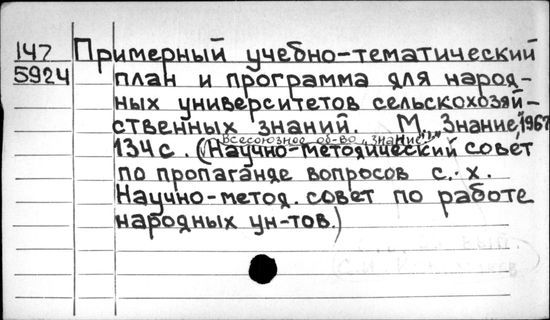 147 Примерный учебно-тематический
5924 план и программа для народ-
ных университетов сельскохозяй-
ственных знаний. М., "Знание", 1967
Всесоюзное об-во "Знание".
134 с. (Научно-методический совет
по пропаганде вопросов с.-х.
Научно-метод. совет по работе
народных ун-тов.)